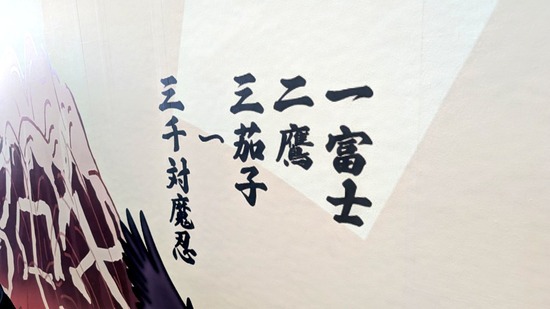 一富士
二鷹
三茄子
〜
三千対魔忍